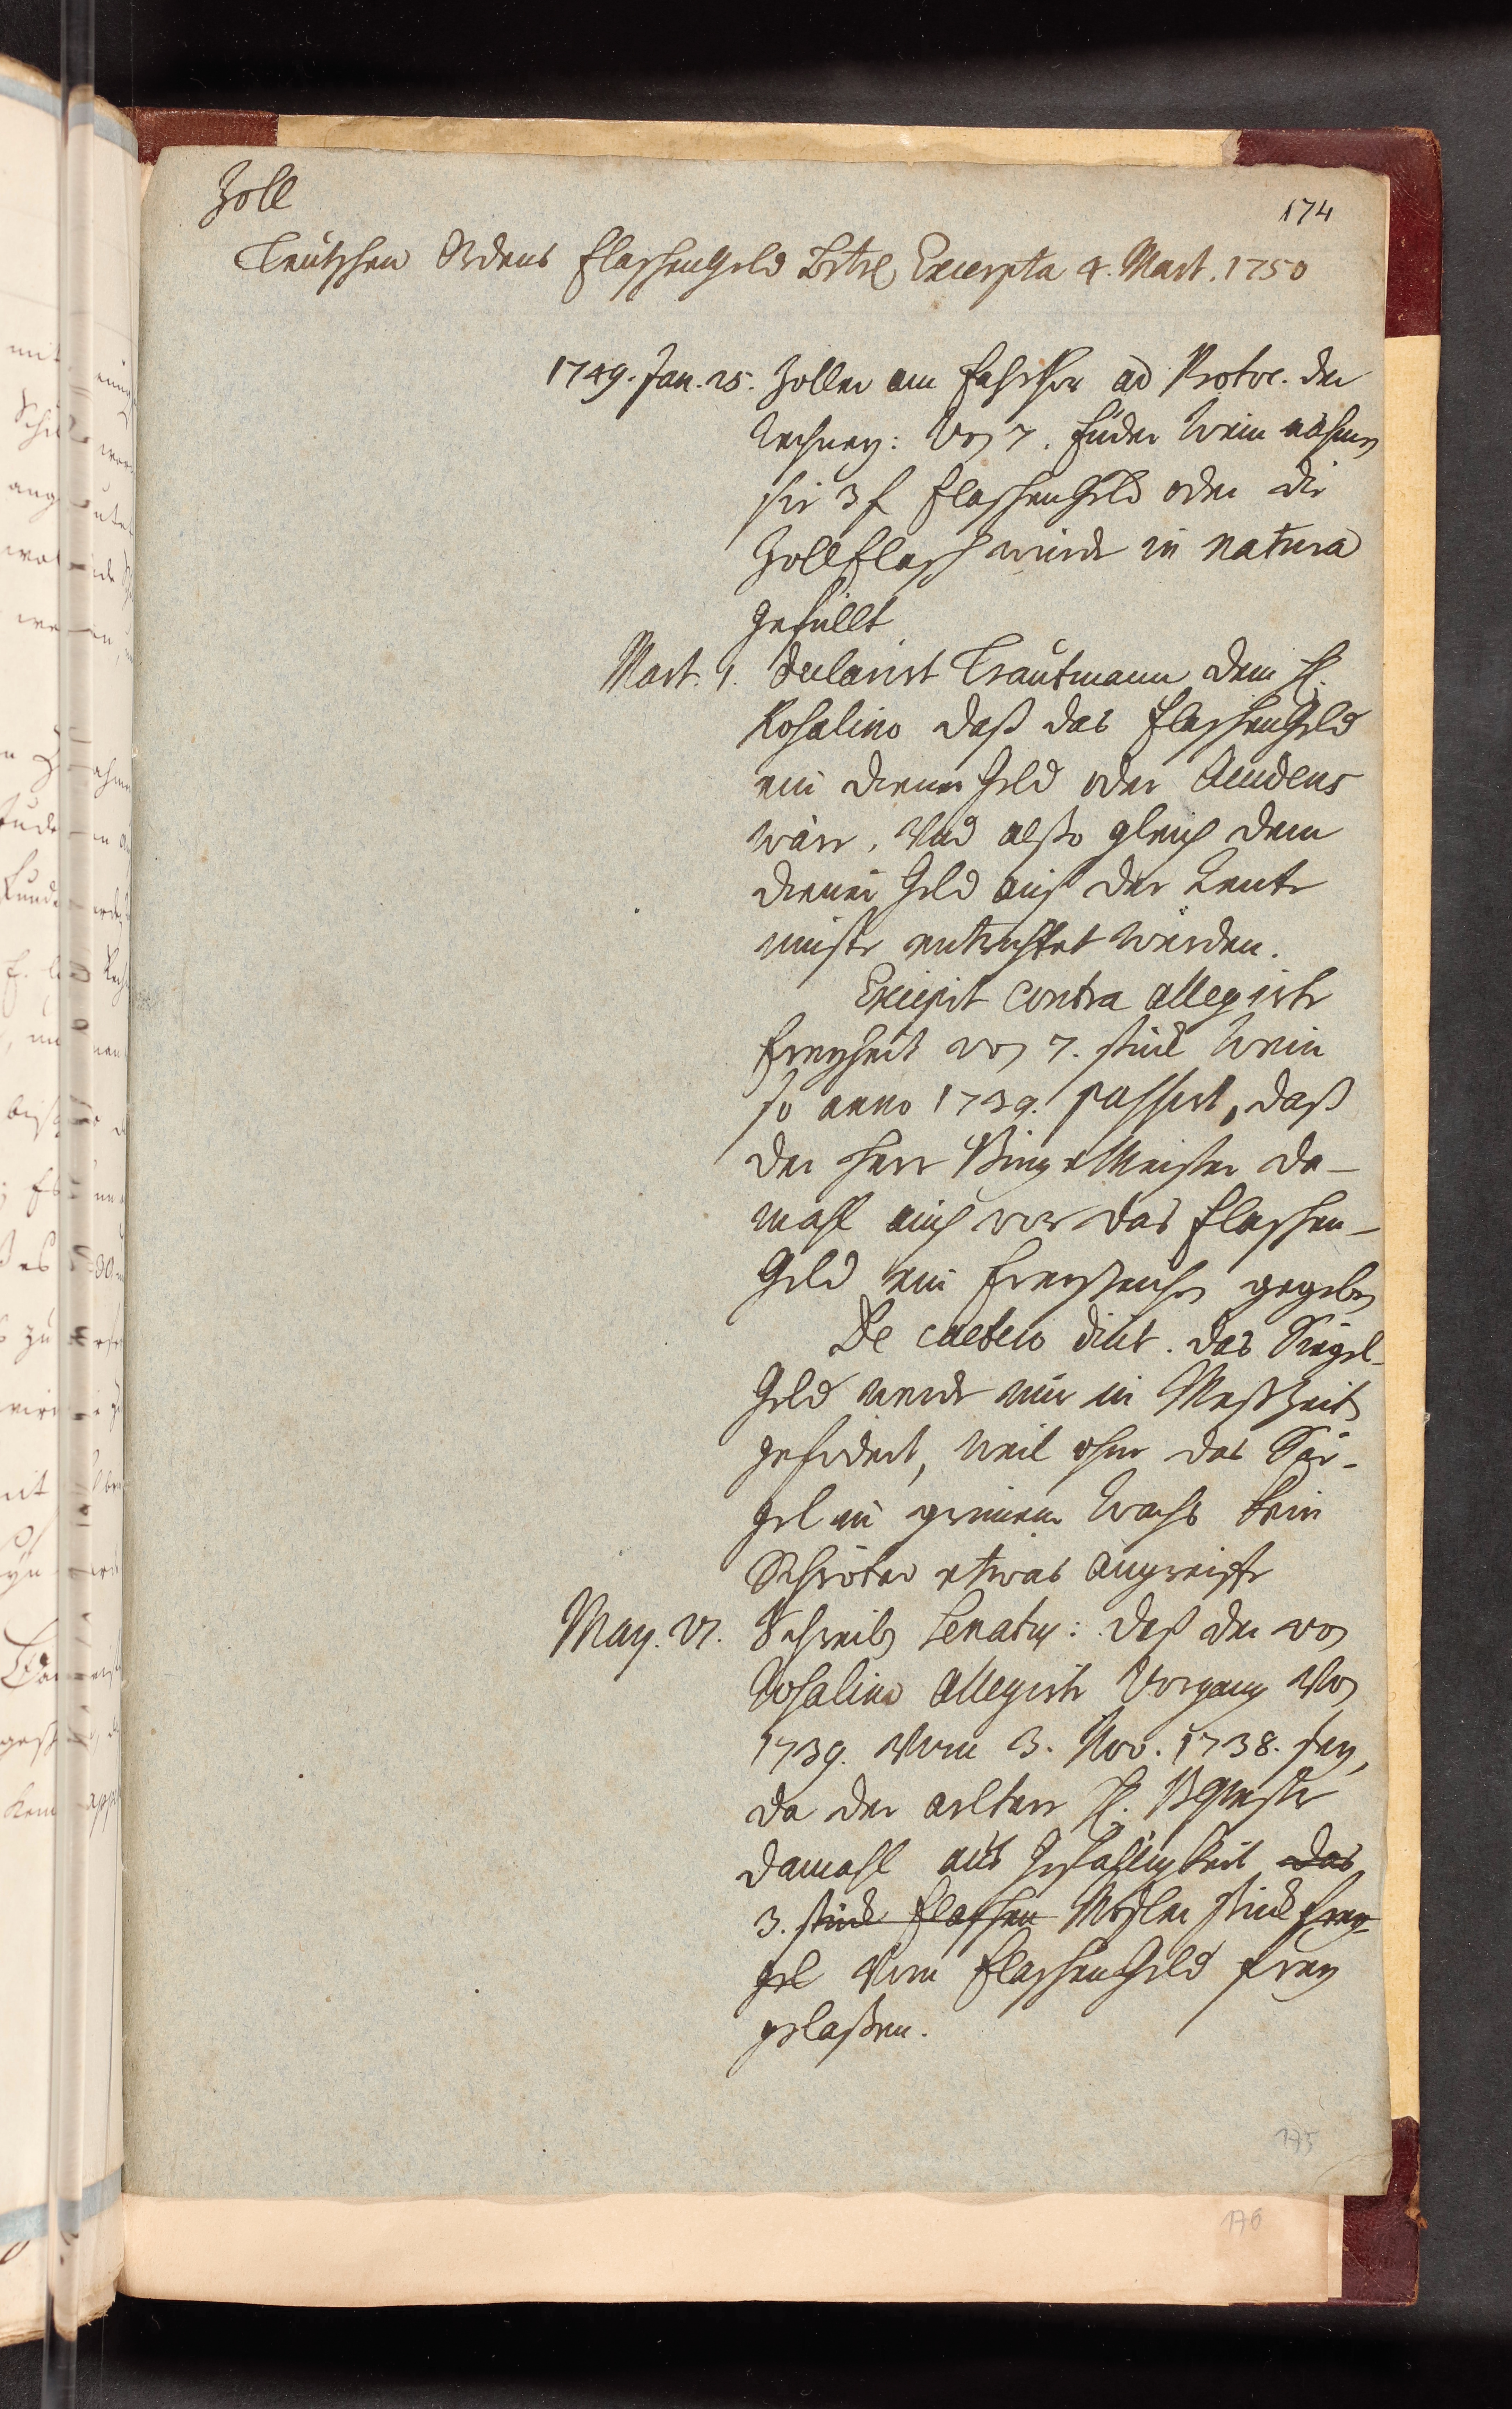 Zoll
174
Teutschen Ordens FlaschenGeld Excerpta 4. Mart. 1750
1749. Jan. 25. Zoller am Fahrthor ad Protoc. der
Rechney: Von 7. Fuder Wein nähmen
sie 3 f FlaschenGeld oder die
Zollflasch würde in natura
gefüllt
Mart. 1. declarirt Trautmann dem H.
Rosalino daß das FlaschenGeld
ein diener Geld oder Accidens
wäre. Und also gleich dem
diener Geld auß der Rente
müste entrichtet werden.
Excipit contra allegirte
Freyheit von 7. stück Wein
so anno 1739. passirt, daß
der Herr BürgerMeister da-
mahl auch vor das Flaschen-
Geld ein Freyzeichen gegeben
De caetero dicit. das Siegel-
Geld werde nur in Meßzeit
gefodert, weil ohne das Sie-
gel in grünem Wachs kein
Schröter etwas angreiffe
May. 27. Schreiben Senatus: daß der von
Rosalino allegirte Vorgang von
1739. vom 3. Nov. 1738. sey,
da der ältere H. BMester
damahl aus Gefälligkeit das
3. stück Flaschen Mosler stück frey
gel vom FlaschenGeld frey
gelaßen.
175
176